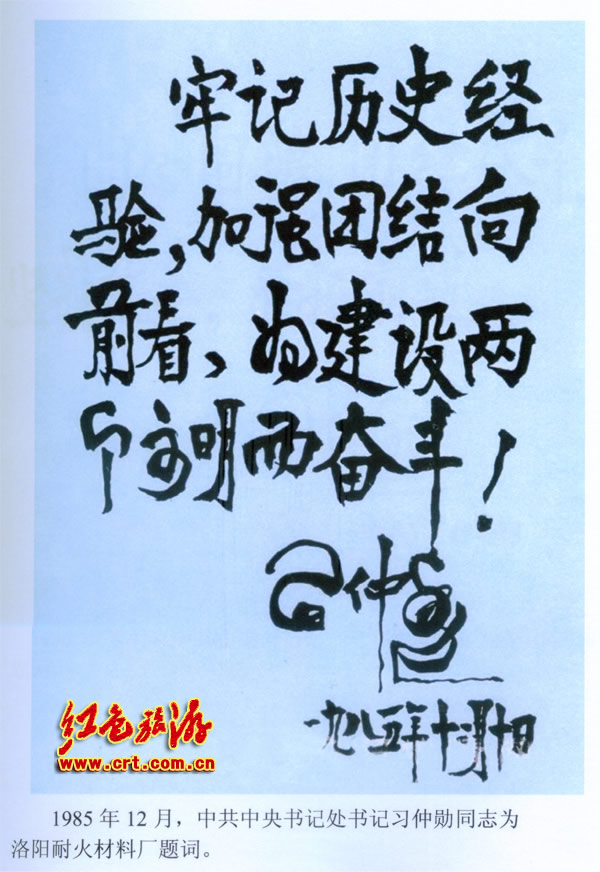 牢记历史经
验,加强团结向
前看,为建设两
个文明而奋斗!
习仲勋
一九八五年十二月十日
红色旅游
www.crt.com.cn
1985 年 12 月，中共中央书记处书记习仲勋同志为
洛阳耐火材料厂题词。